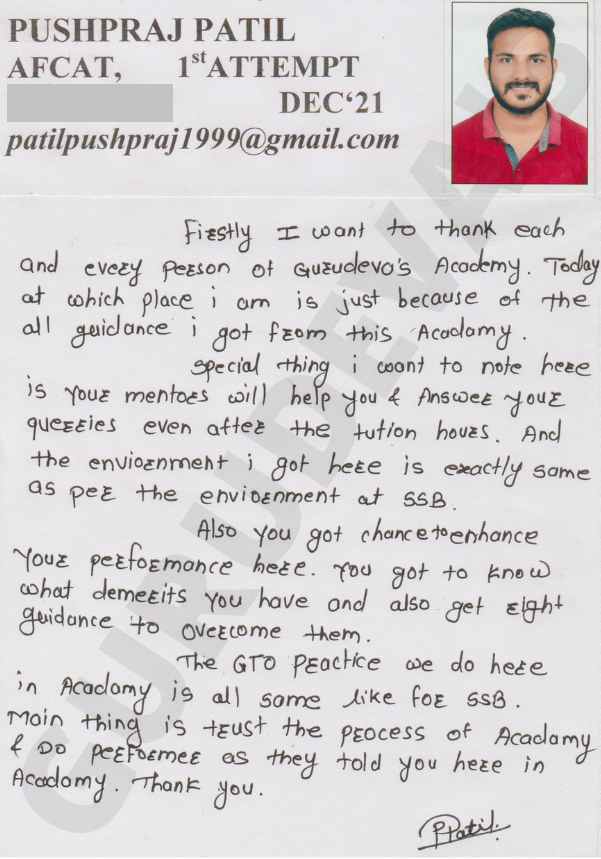 PUSHPRAJ PATIL
AFCAT, 1st ATTEMPT
DEC‘21
patilpushpraj1999@gmail.com
Firstly I want to thank each
and every person of Gurudevo's Academy. Today
at which place i am is just because of the
all guidance i got from this Acadamy.
special thing i want to note here
is your mentors will help you & Answer your
querries even after the tution hours. And
the enviornment i got here is exactly same
as per the enviornment at SSB.
Also you got chance to enhance
your performance here. You got to know
what demerits you have and also get right
guidance to overcome them.
The GTO practice we do here
in Acadamy is all same like for SSB.
Main thing is trust the process of Acadamy
& Do performe as they told you here in
Acadamy. Thank you.
PPatil.
GURUDEVA'S